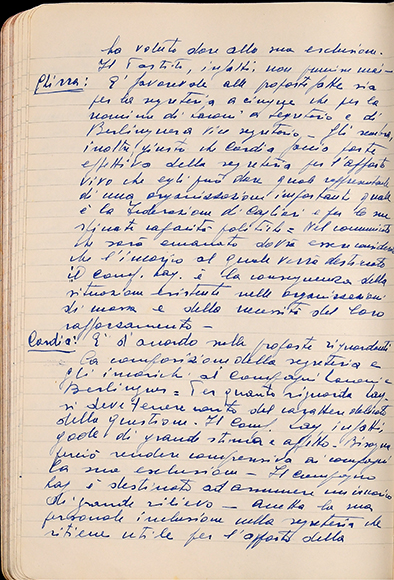 ha voluto dare alla sua esclusione.
Il Partito, infatti, non
Ghirra: E' favorevole alle proposte fatte sia
per la segreteria a cinque che per la
nomina di Laconi a segretario e di
Berlinguer a Vice segretario - Gli sembra,
inoltre, giusto che Cardia faccia parte
effettiva della segreteria per l'apporto
vivo che egli può dare quale rappresentante
di una organizzazione importante quale
è la Federazione di Cagliari e per le sue
spiccate capacità politiche = Nel comunicato
che sarà emanato dovrà essere considerato
che l'incarico al quale verrà destinato
il Comp. Lay è la conseguenza della
situazione esistente nelle organizzazioni
di massa e della necessità del loro
rafforzamento -
Cardia: E' d'accordo sulle proposte riguardanti
la composizione della segreteria e
gli incarichi ai Compagni Laconi e
Berlinguer = Per quanto riguarda Lay
si deve tenere conto del carattere delicato
della questione. Il Comp. Lay infatti
gode di grande stima e affetto. Bisogna
perciò rendere comprensiva ai compagni
la sua esclusione - Il compagno
Lay è destinato ad assumere un incarico
di grande rilievo - Anche la sua
personale inclusione nella segreteria che
ritiene utile per l'apporto della